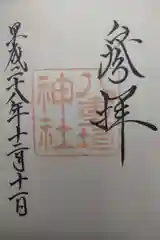 奉拝
平成二八年十二月十一日
神社